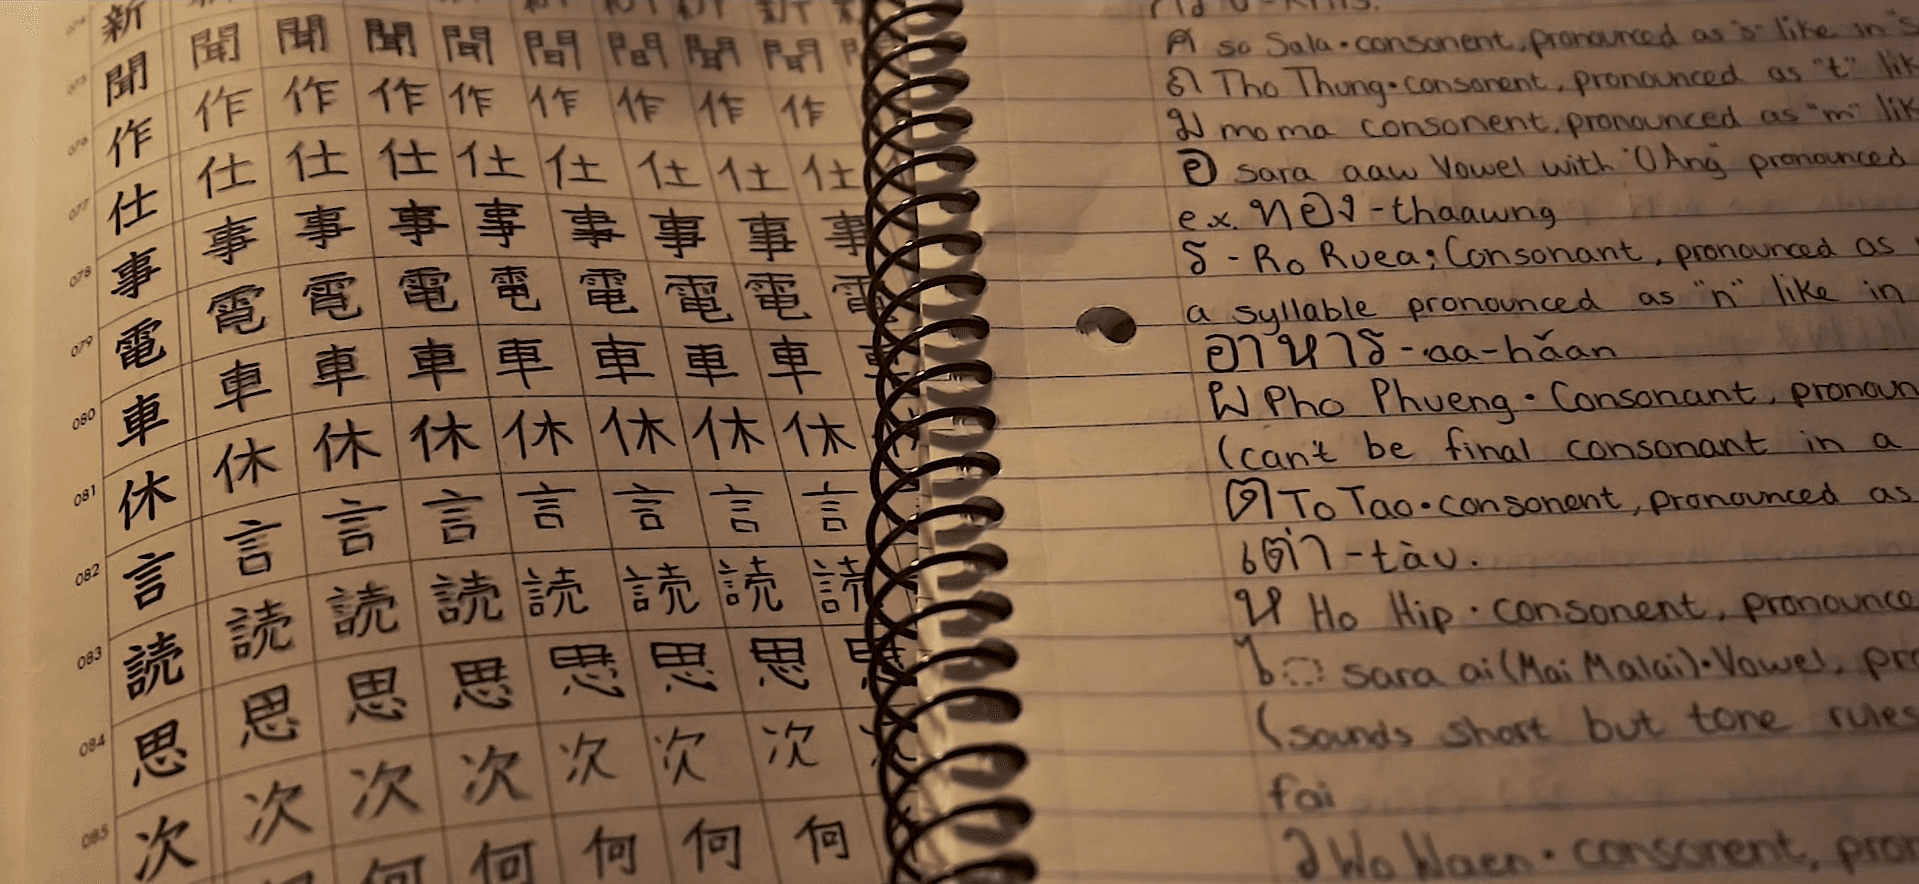 074 新
075 聞 聞 聞 聞 聞 聞 聞 聞 聞
076 作 作 作 作 作 作 作 作 作
077 仕 仕 仕 仕 仕 仕 仕 仕 仕
078 事 事 事 事 事 事 事 事 事
079 電 電 電 電 電 電 電 電 電
080 車 車 車 車 車 車 車 車
081 休 休 休 休 休 休 休 休
082 言 言 言 言 言 言 言 言
083 読 読 読 読 読 読 読 読
084 思 思 思 思 思 思 思 思
085 次 次 次 次 次 次 次
何 何 何 何 何
ศ so Sala • consonent, pronounced as "s" like in "s
ถ Tho Thung • consonent, pronounced as "t" lik
ม mo ma consonent, pronounced as "m" lik
อ sara aaw Vowel with "O Ang" pronounced
ex. ทอง - thaawng
ร - Ro Ruea; Consonant, pronounced as
a syllable pronounced as "n" like in
อาหาร - aa-hǎan
ผ Pho Phueng • Consonant, pronoun
(can't be final consonant in a
ต To Tao • consonent, pronounced as
เต่า - tàu.
ห Ho Hip • consonent, pronounce
ไ◌ sara ai (Mai Malai) • Vowel, pro
(sounds short but tone rules
fai
ว Wo Waen • consonent, pron